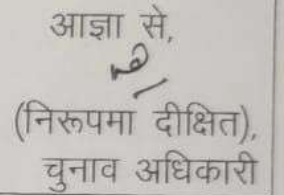 आज्ञा से,
(निरूपमा दीक्षित),
चुनाव अधिकारी